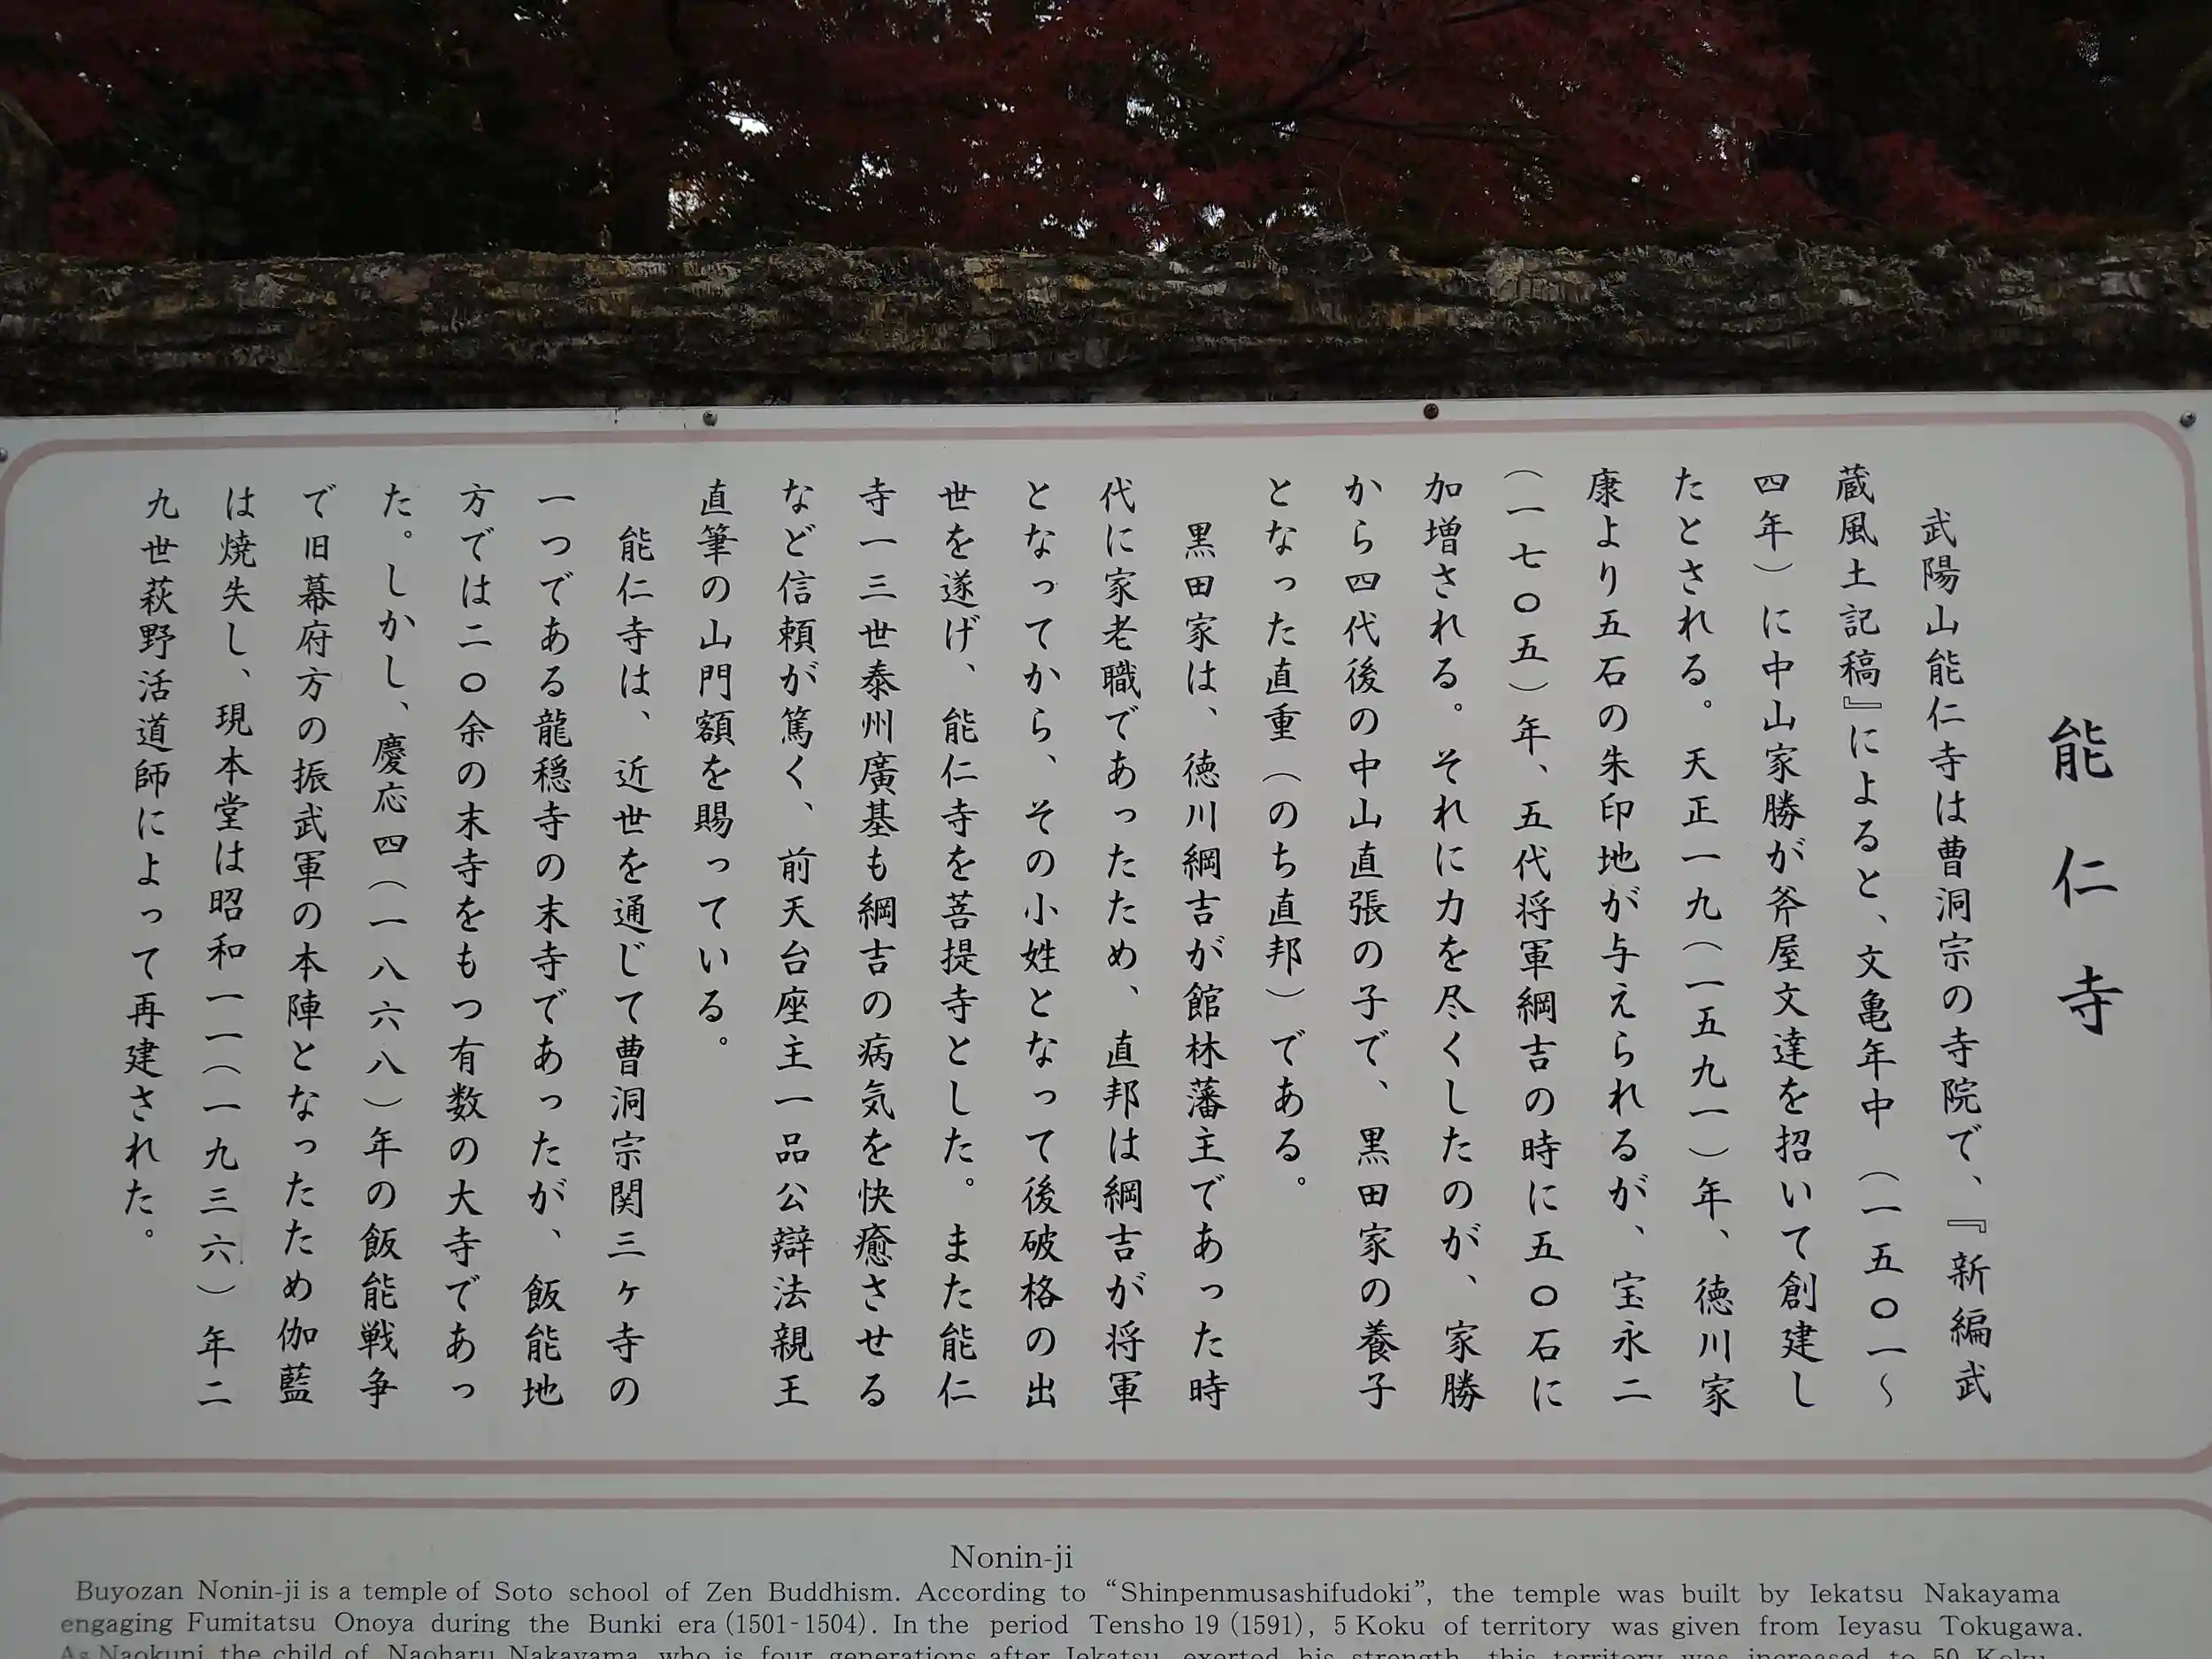 能仁寺
武陽山能仁寺は曹洞宗の寺院で、『新編武
蔵風土記稿』によると、文亀年中（一五〇一～
四年）に中山家勝が斧屋文達を招いて創建し
たとされる。天正一九（一五九一）年、徳川家
康より五石の朱印地が与えられるが、宝永二
（一七〇五）年、五代将軍綱吉の時に五〇石に
加増される。それに力を尽くしたのが、家勝
から四代後の中山直張の子で、黒田家の養子
となった直重（のち直邦）である。
黒田家は、徳川綱吉が館林藩主であった時
代に家老職であったため、直邦は綱吉が将軍
となってから、その小姓となって後破格の出
世を遂げ、能仁寺を菩提寺とした。また能仁
寺一三世泰州廣基も綱吉の病気を快癒させる
など信頼が篤く、前天台座主一品公辯法親王
直筆の山門額を賜っている。
能仁寺は、近世を通じて曹洞宗関三ヶ寺の
一つである龍穏寺の末寺であったが、飯能地
方では二〇余の末寺をもつ有数の大寺であっ
た。しかし、慶応四（一八六八）年の飯能戦争
で旧幕府方の振武軍の本陣となったため伽藍
は焼失し、現本堂は昭和一一（一九三六）年二
九世萩野活道師によって再建された。
Nonin-ji
Buyozan Nonin-ji is a temple of Soto school of Zen Buddhism. According to “Shinpenmusashifudoki”, the temple was built by Iekatsu Nakayama
engaging Fumitatsu Onoya during the Bunki era (1501-1504). In the period Tensho 19 (1591), 5 Koku of territory was given from Ieyasu Tokugawa.
As Naokuni the child of Naoharu Nakayama who is four generations after Iekatsu exerted his strength, this territory was increased to 50 Koku